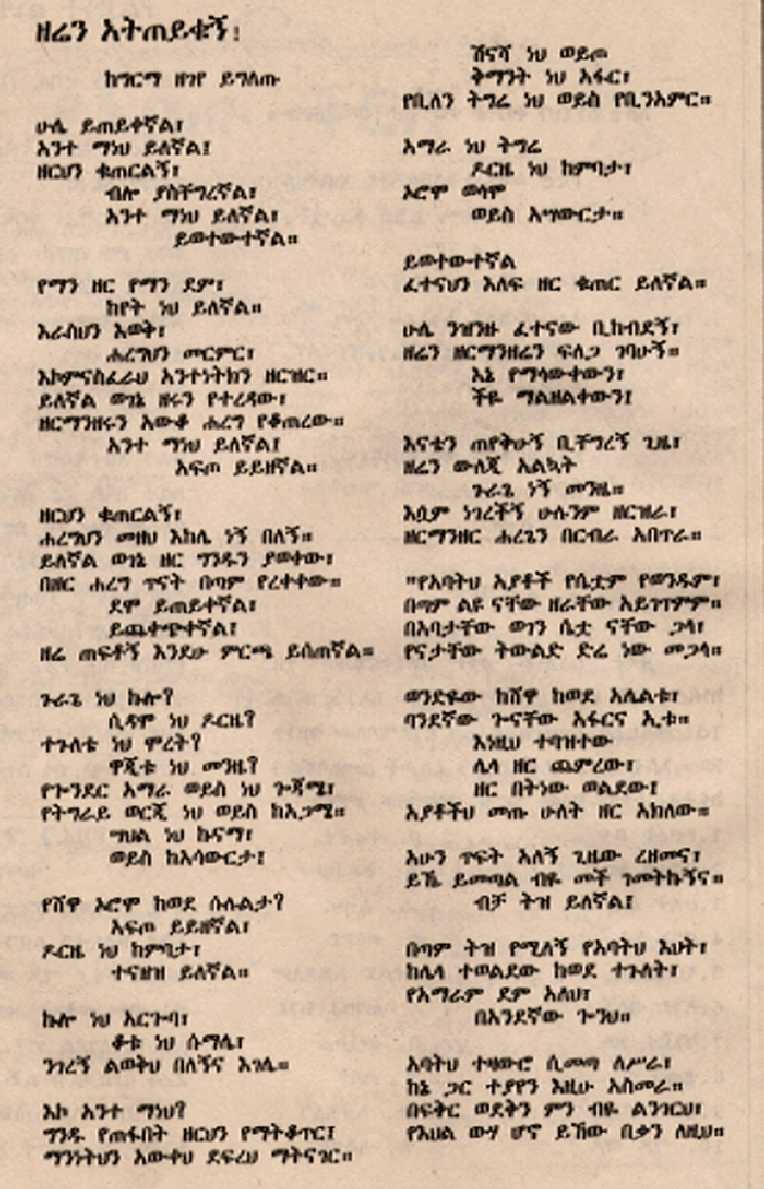 ዘሬን አትጠይቁኝ!
ከግርማ ዘገየ ይግለጡ
ሁሌ ይጠይቀኛል፣
አንተ ማነህ ይለኛል፤
ዘርህን ቁጠርልኝ፣
ብሎ ያስቸግረኛል፣
አንተ ማነህ ይለኛል፣
ይወተውተኛል።
የማን ዘር የማን ደም፣
ከየት ነህ ይለኛል።
እራስህን እወቅ፣
ሐረግህን መርምር፣
እኮምናስፈራህ አንተነትክን ዘርዝር።
ይለኛል ወገኔ ዘሩን የተረዳው፣
ዘርማንዘሩን አውቆ ሐረግ የቆጠረው።
አንተ ማነህ ይለኛል፤
አፍጦ ይይዘኛል።
ዘርህን ቁጠርልኝ፣
ሐረግህን መዘህ እከሌ ነኝ በለኝ።
ይለኛል ወገኔ ዘር ግንዱን ያወቀው፣
በዘር ሐረግ ጥናት በጣም የረቀቀው።
ደሞ ይጠይቀኛል፣
ይጨቀጭቀኛል፣
ዘሬ ጠፍቶኝ እንደሁ ምርጫ ይሰጠኛል።
ጉራጌ ነህ ኩሎ?
ሲዳሞ ነህ ዶርዜ?
ተጉለቴ ነህ ሞረት?
ዋጂቱ ነህ መንዜ?
የጐንደር አማራ ወይስ ነህ ጐጃሜ፣
የትግራይ ወርጂ ነህ ወይስ ከእጋሜ።
ግህል ነህ ኩናማ፣
ወይስ ከእሳውርታ፤
የሸዋ ኦሮሞ ከወደ ሱሉልታ?
አፍጦ ይይዘኛል፣
ዶርዜ ነህ ከምባታ፣
ተናዘዝ ይለኛል።
ኩሎ ነህ አርጉባ፣
ቆቱ ነህ ሱማሌ፣
ንገረኝ ልወቅህ በለኝና እገሌ።
እኮ አንተ ማነህ?
ግንዱ የጠፋበት ዘርህን የማትቆጥር፤
ማንነትህን አውቀህ ደፍረህ ማትናገር።
ሽናሻ ነህ ወይጦ
ቅማንት ነህ አፋር፣
የቢለን ትግሬ ነህ ወይስ የቢንአምር።
አማራ ነህ ትግሬ
ዶርዜ ነህ ከምባታ፣
ኦሮሞ ወላሞ
ወይስ አሣውርታ።
ይወተውተኛል
ፈተናህን እለፍ ዘር ቁጠር ይለኛል።
ሁሌ ንዝንዙ ፈተናው ቢከብደኝ፣
ዘሬን ዘርማንዘሬን ፍለጋ ገባሁኝ።
እኔ የማላውቀውን፣
ችዬ ማልዘልቀውን፤
እናቴን ጠየቅሁኝ ቢቸግረኝ ጊዜ፣
ዘረን ውለጂ አልኳት
ጉራጌ ነኝ መንዜ።
እሷም ነገረችኝ ሁሉንም ዘርዝራ፣
ዘርማንዘር ሐረጌን በርብራ አበጥራ።
"የአባትህ አያቶች የሴቷም የወንዱም፣
በጣም ልዩ ናቸው ዘራቸው አይገጥምም።
በአባታቸው ወገን ሴቷ ናቸው ጋላ፣
የናታቸው ትውልድ ድሬ ነው መጋላ።
ወንድየው ከሸዋ ከወደ አሌልቱ፣
ባንደኛው ጐናቸው አፋርና ኢቱ።
እነዚህ ተባዝተው
ሌላ ዘር ጨምረው፣
ዘር በትነው ወልደው፤
አያቶችህ መጡ ሁለት ዘር አክለው።
አሁን ጥፍት አለኝ ጊዜው ረዘመና፣
ይኼ ይመጣል ብዬ መች ገመትኩኝና።
ብቻ ትዝ ይለኛል፤
በጣም ትዝ የሚለኝ የአባትህ እህት፣
ከሌላ ተወልደው ከወደ ተጉለት፣
የአማራም ደም አለህ፣
በአንደኛው ጐንህ።
አባትህ ተዛውሮ ሲመጣ ለሥራ፣
ከኔ ጋር ተያየን እዚሁ አስመራ።
በፍቅር ወደቅን ምን ብዬ ልንገርህ፣
የእህል ውሃ ሆኖ ይኸው ቢቃን ለዚህ።